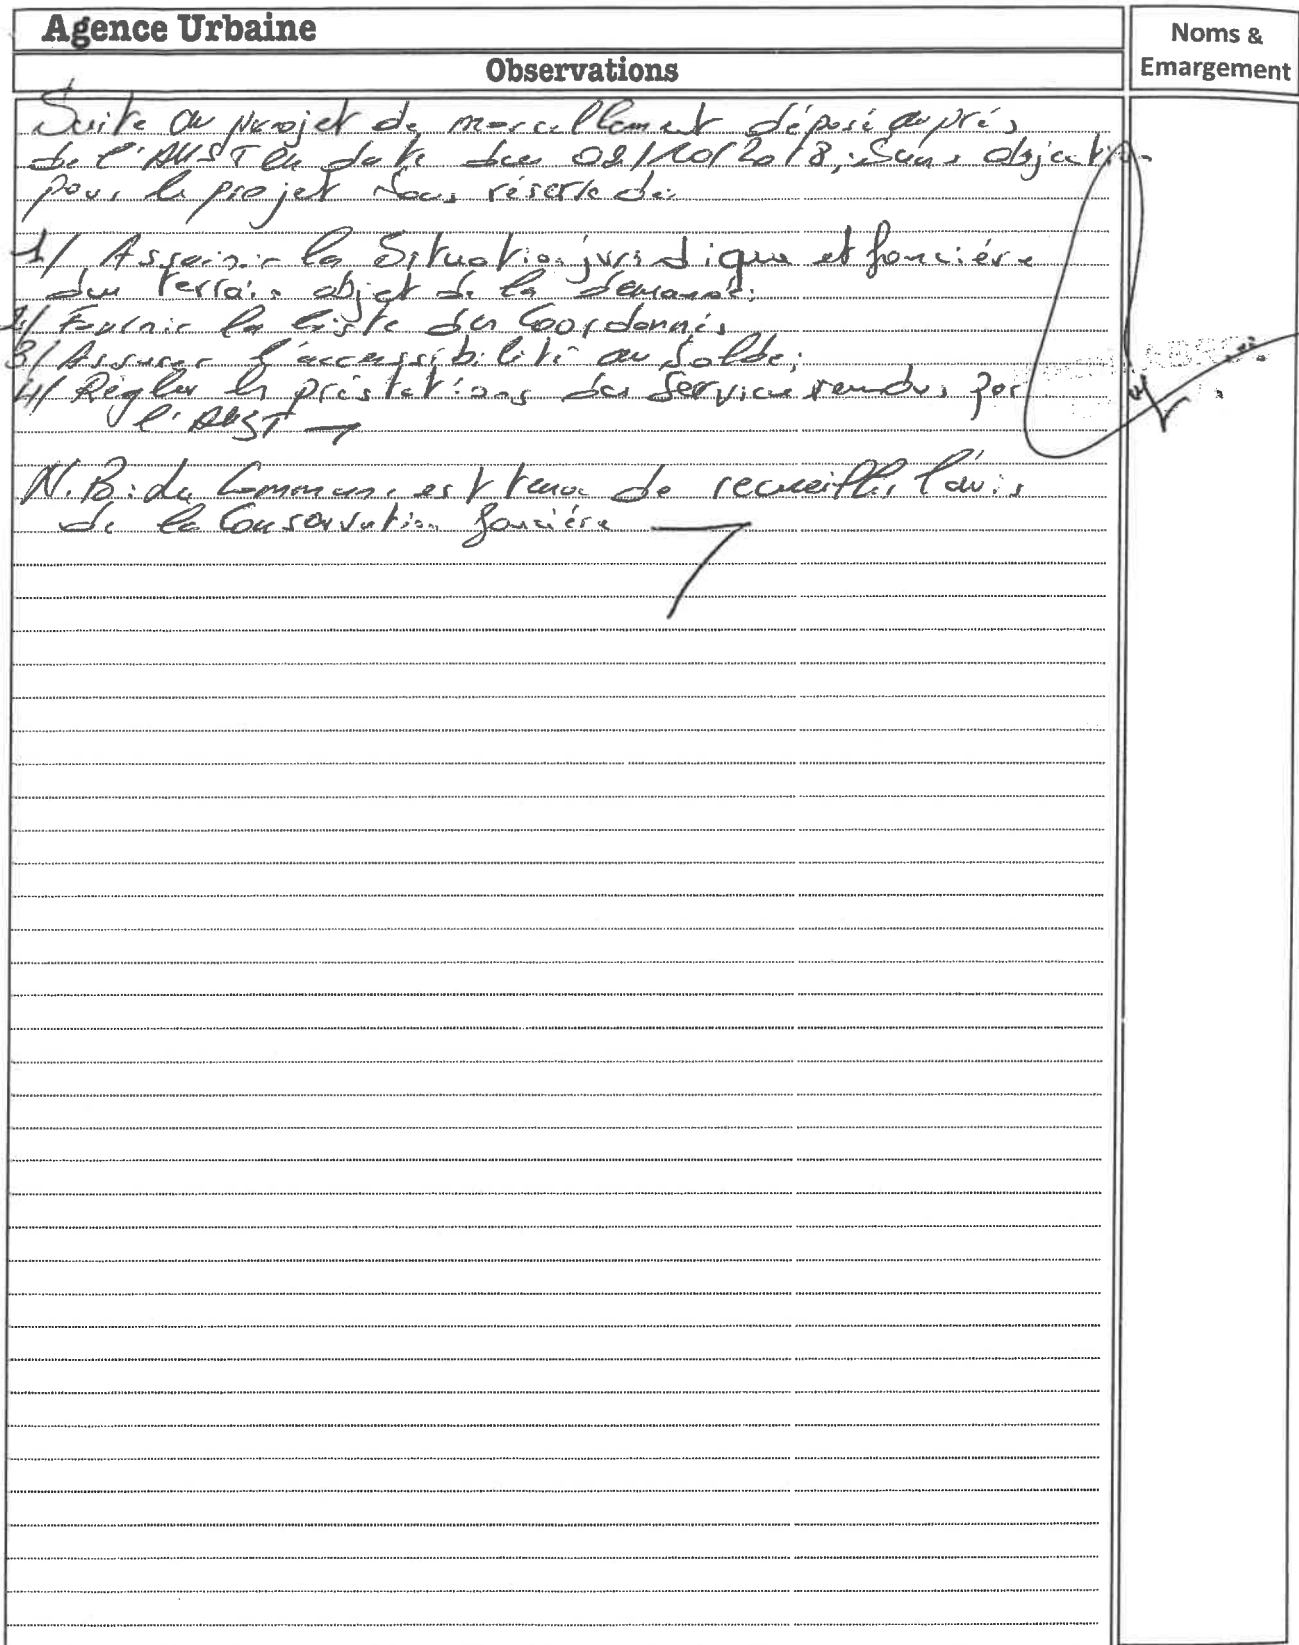 Agence Urbaine
Noms &
Emargement
Observations
Suite au projet de morcellement déposé auprès
de l'AUST en date du 02/10/2018, Sans objection
pour le projet sous réserve de:
1/ Assainir la Situation juridique et foncière
du terrain objet de la demande;
2/ Fournir la liste des Coordonnés
3/ Assurer l'accessibilité au Solde;
4/ Régler les préstations des services rendus par
l'AUST
N.B: La Commune est tenue de recueillir l'avis
de la Conservation foncière